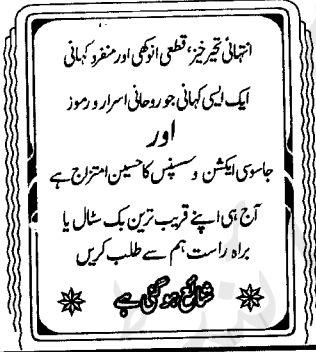 انتہائی تحیر خیز، قطعی انوکھی اور منفرد کہانی
ایک ایسی کہانی جو روحانی اسرار و رموز
اور
جاسوسی ایکشن و سسپنس کا حسین امتزاج ہے
آج ہی اپنے قریب ترین بک سٹال یا
براہ راست ہم سے طلب کریں
شائع ہو گئی ہے